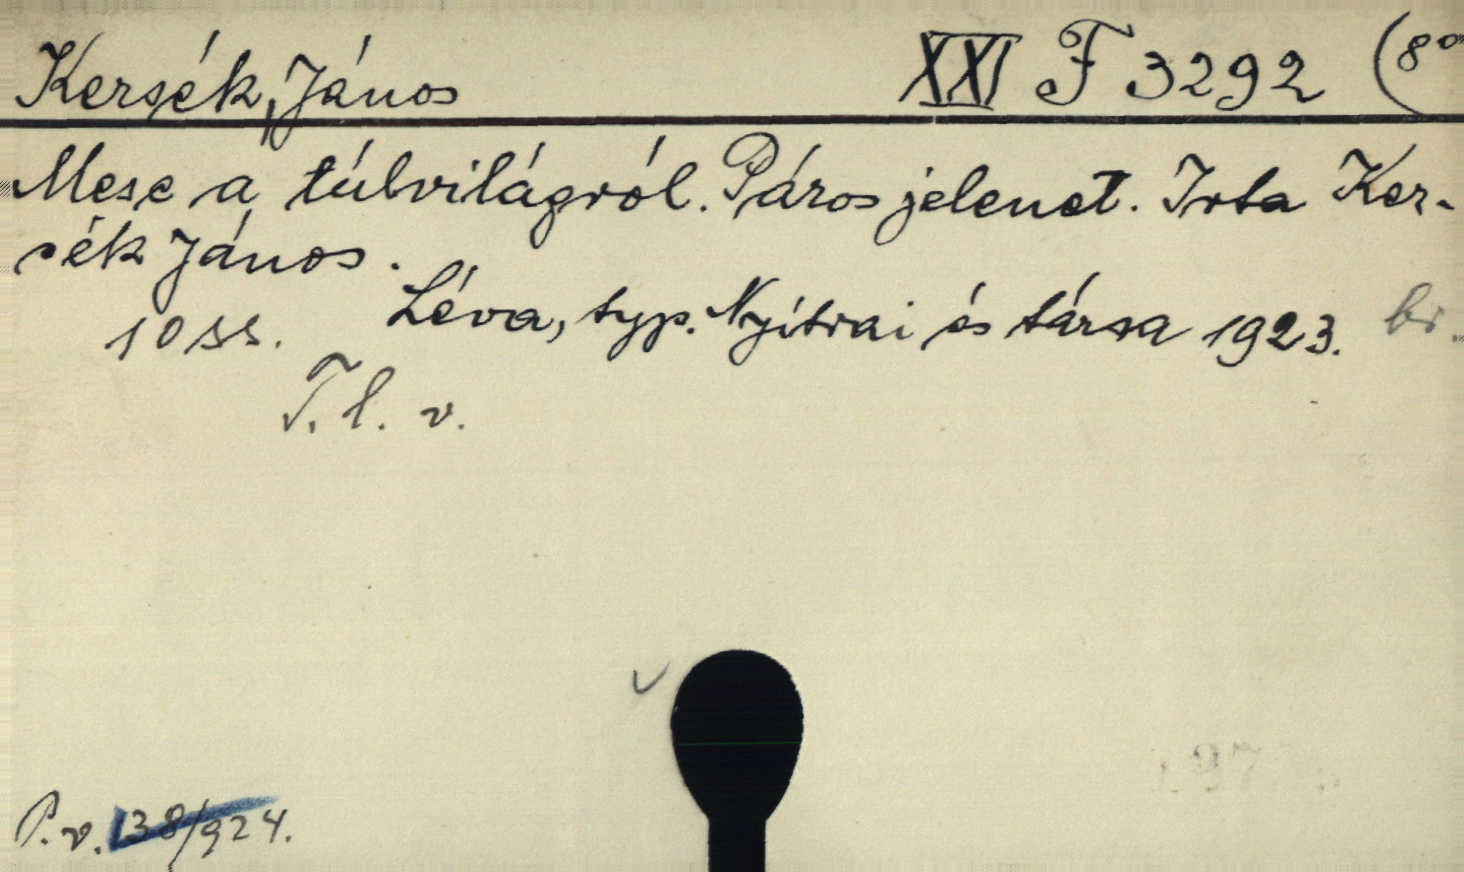 Kersék, János XXI F 3292 (8°
Mese a túlvilágról. Páros jelenet. Irta Ker-
sék János.
Léva, typ. Nyitrai és társa 1923. br.
10 ss.
T. l. v.
P. v. 138/924.